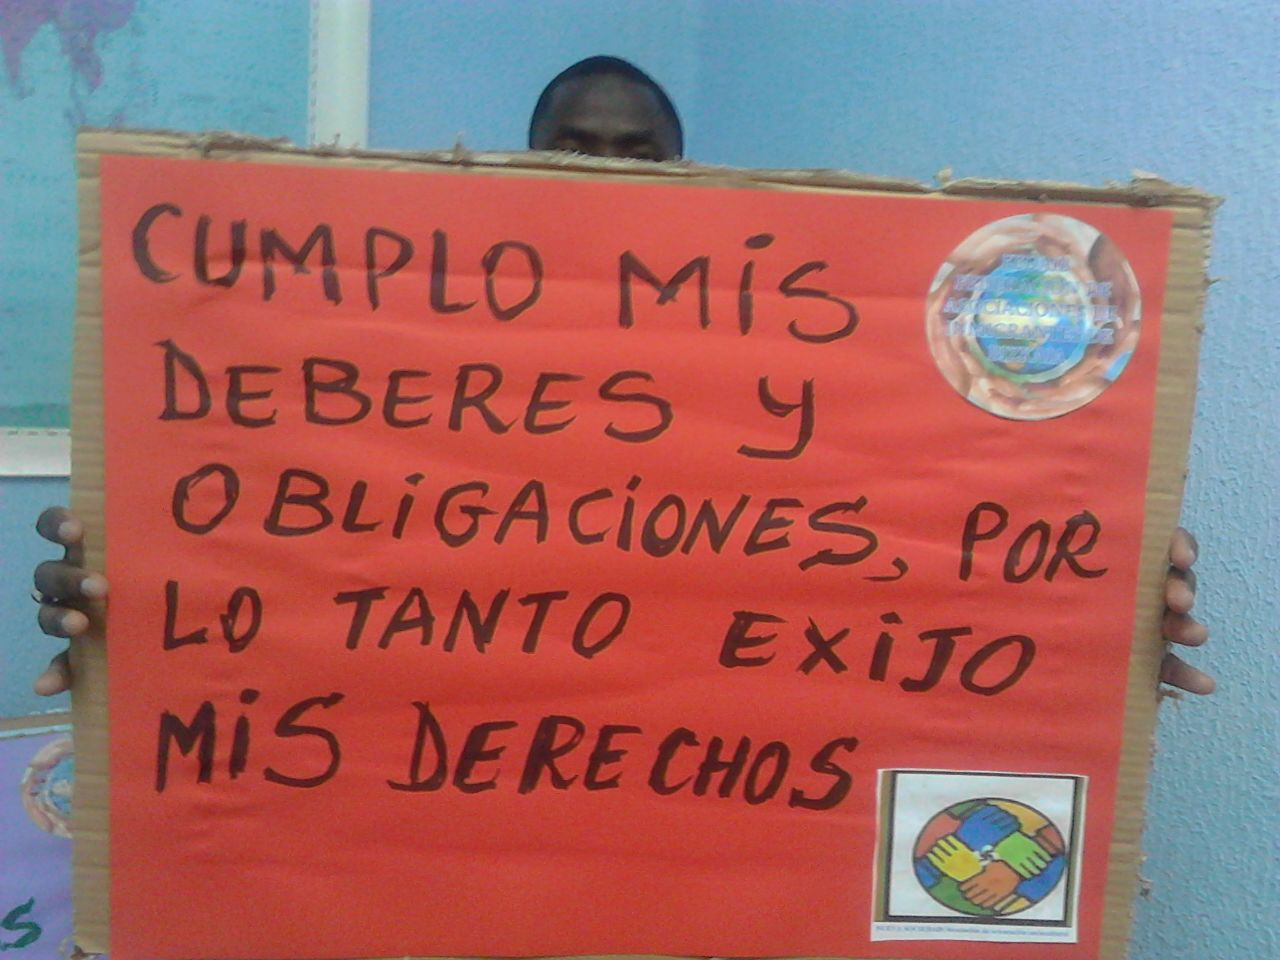 CUMPLO MiS
DEBERES y
OBLiGACiONES, POR
LO TANTO EXiJO
MiS DERECHOS
FEDERACION DE
ASOCIACIONES DE
INMIGRANTES DE
BIZKAIA
S